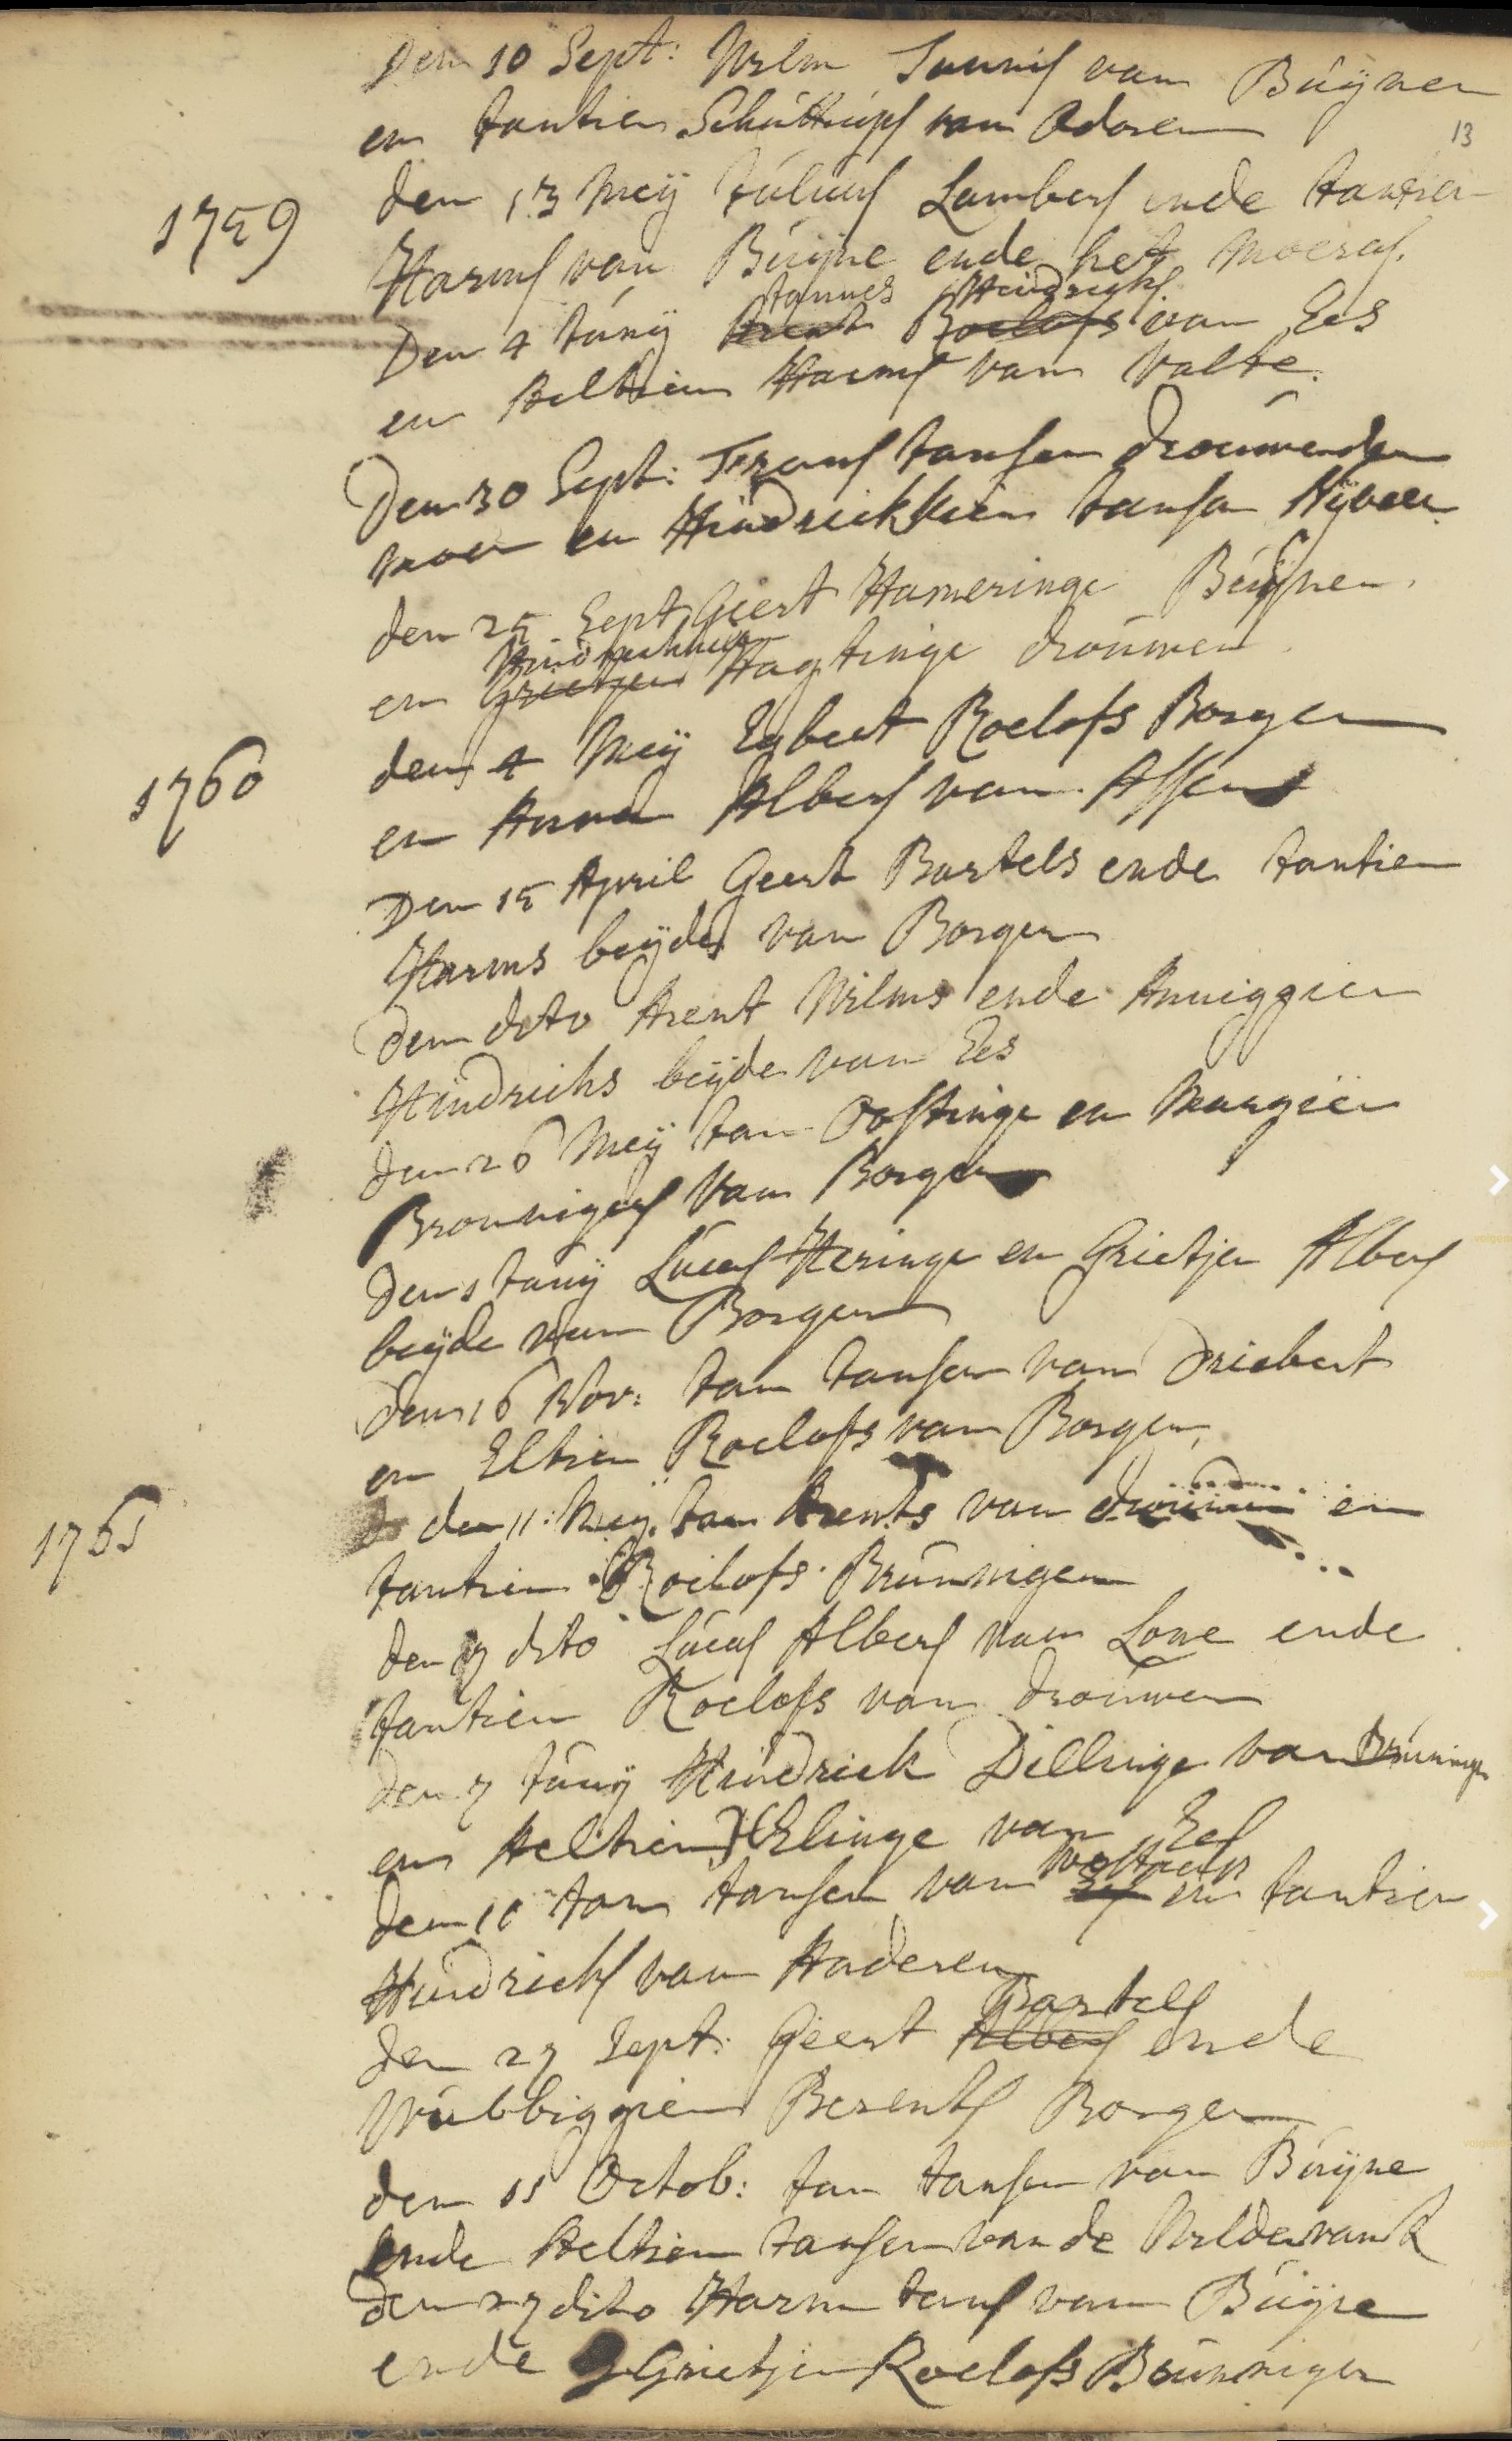 Den 10 Sept: Wilm Sunnis van Buÿnen
13
en Jantien Schuttrups van Odoren
1759
den 13 Meÿ Julius Lambers ende Jantien
Harms van Buÿne ende het Moeras.
Jannes Hindriks
Den 4 Junÿ Arent Roelofs van Ees
en Aeltien Harms van Valte.
Den 30 Sept: Frans Jansen Drouwender
moer en Hindrickkien Jansen Nÿveen
den 25 Sept Geert Hameringe Buÿnen.
Hindrickien
en Grietjen Hagtinge Drouwen.
1760
den 4 Meÿ Egbert Roelofs Borger
en Anna Albers van Assen
Den 15 April Geert Bartels ende Jantien
Harms beÿde van Borger
Den dito Arent Wilms ende Anniggien
Hindrichs beÿde van Ees
Den 26 Meÿ Jan Oostinge en Margien
Bronnigers van Borger
Den 1 Junÿ Lucas Heringe en Grietjen Albers
beÿde van Borger
Den 16 Nov: Jan Jansen van Driebert
en Eltien Roelofs van Borger,
1761
den 11 Meÿ. Jan Arents van Drouwen en
Jantien Roelofs Brunnigen
den 17 dito Lucas Albers van Lone ende
Jantien Roelofs van Drouwen
den 7 Junÿ Hindrick Dillinge van Brunnige
en Aeltien Elinge van Ees
Westrup
den 10 Jan Jansen van Ees en Jantien
Hindricks van Anderen
Bartels
den 27 Sept: Geert Albers ende
Wubbiggien Berents Borger
den 11 Octob: Jan Jansen van Buÿne
ende Aeltien Jansen van de Wildevank
den 27 dito Harm Jans van Buÿne
ende Grietjen Roelofs Brunnigen